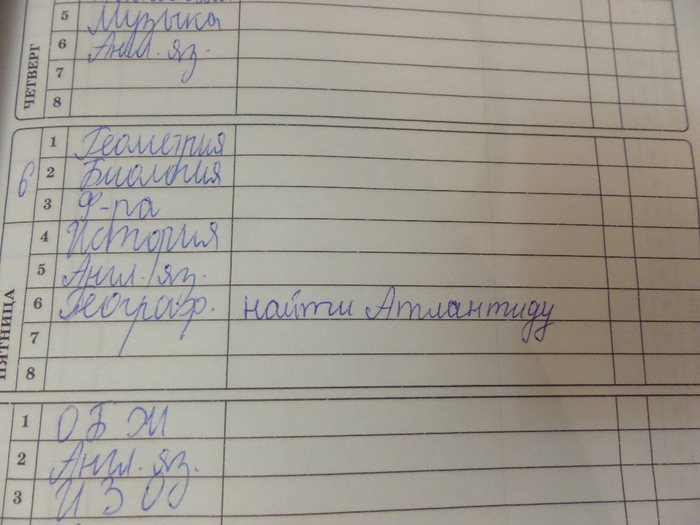 ЧЕТВЕРГ
5 Музыка
6 Англ. яз.
7
8
6
ПЯТНИЦА
1 Геометрия
2 Биология
3 Ф-ра
4 История
5 Англ. яз.
6 Географ. найти Атлантиду
7
8
1 ОБЖ
2 Англ. яз.
3 ИЗО